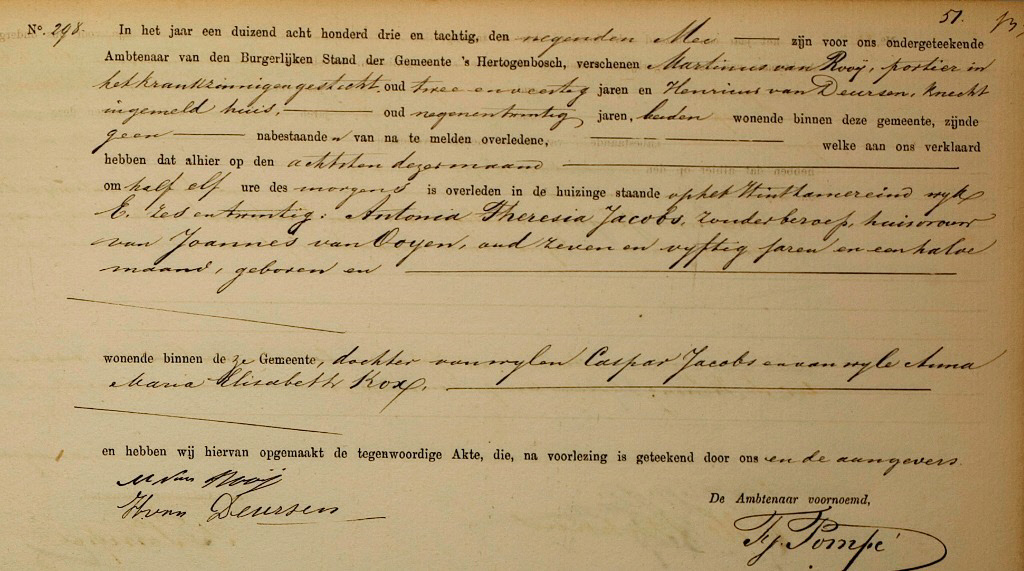 51.
No. 298. In het jaar een duizend acht honderd drie en tachtig, den negenden Mei zijn voor ons ondergeteekende
Ambtenaar van den Burgerlijken Stand der Gemeente 's Hertogenbosch, verschenen Martinus van Rooij, portier in
het krankzinnigengesticht, oud twee en veertig jaren en Henricus van Deursen, knecht
in gemeld huis, oud negenentwintig jaren, beiden wonende binnen deze gemeente, zijnde
geen nabestaanden van na te melden overledene, welke aan ons verklaard
hebben dat alhier op den achtsten dezer maand
om half elf ure des morgens is overleden in de huizinge staande op het Hinthamereind wyk
E. zes en twintig: Antonia Theresia Jacobs, zonder beroep, huisvrouw
van Joannes van Ooyen, oud zeven en vyftig jaren en een halve
maand, geboren en
wonende binnen deze Gemeente, dochter van wylen Caspar Jacobs en van wyle Anna
Maria Elisabeth Kox.
en hebben wij hiervan opgemaakt de tegenwoordige Akte, die, na voorlezing is geteekend door ons en de aangevers.
M van Rooij
H van Deursen
De Ambtenaar voornoemd,
Pompé